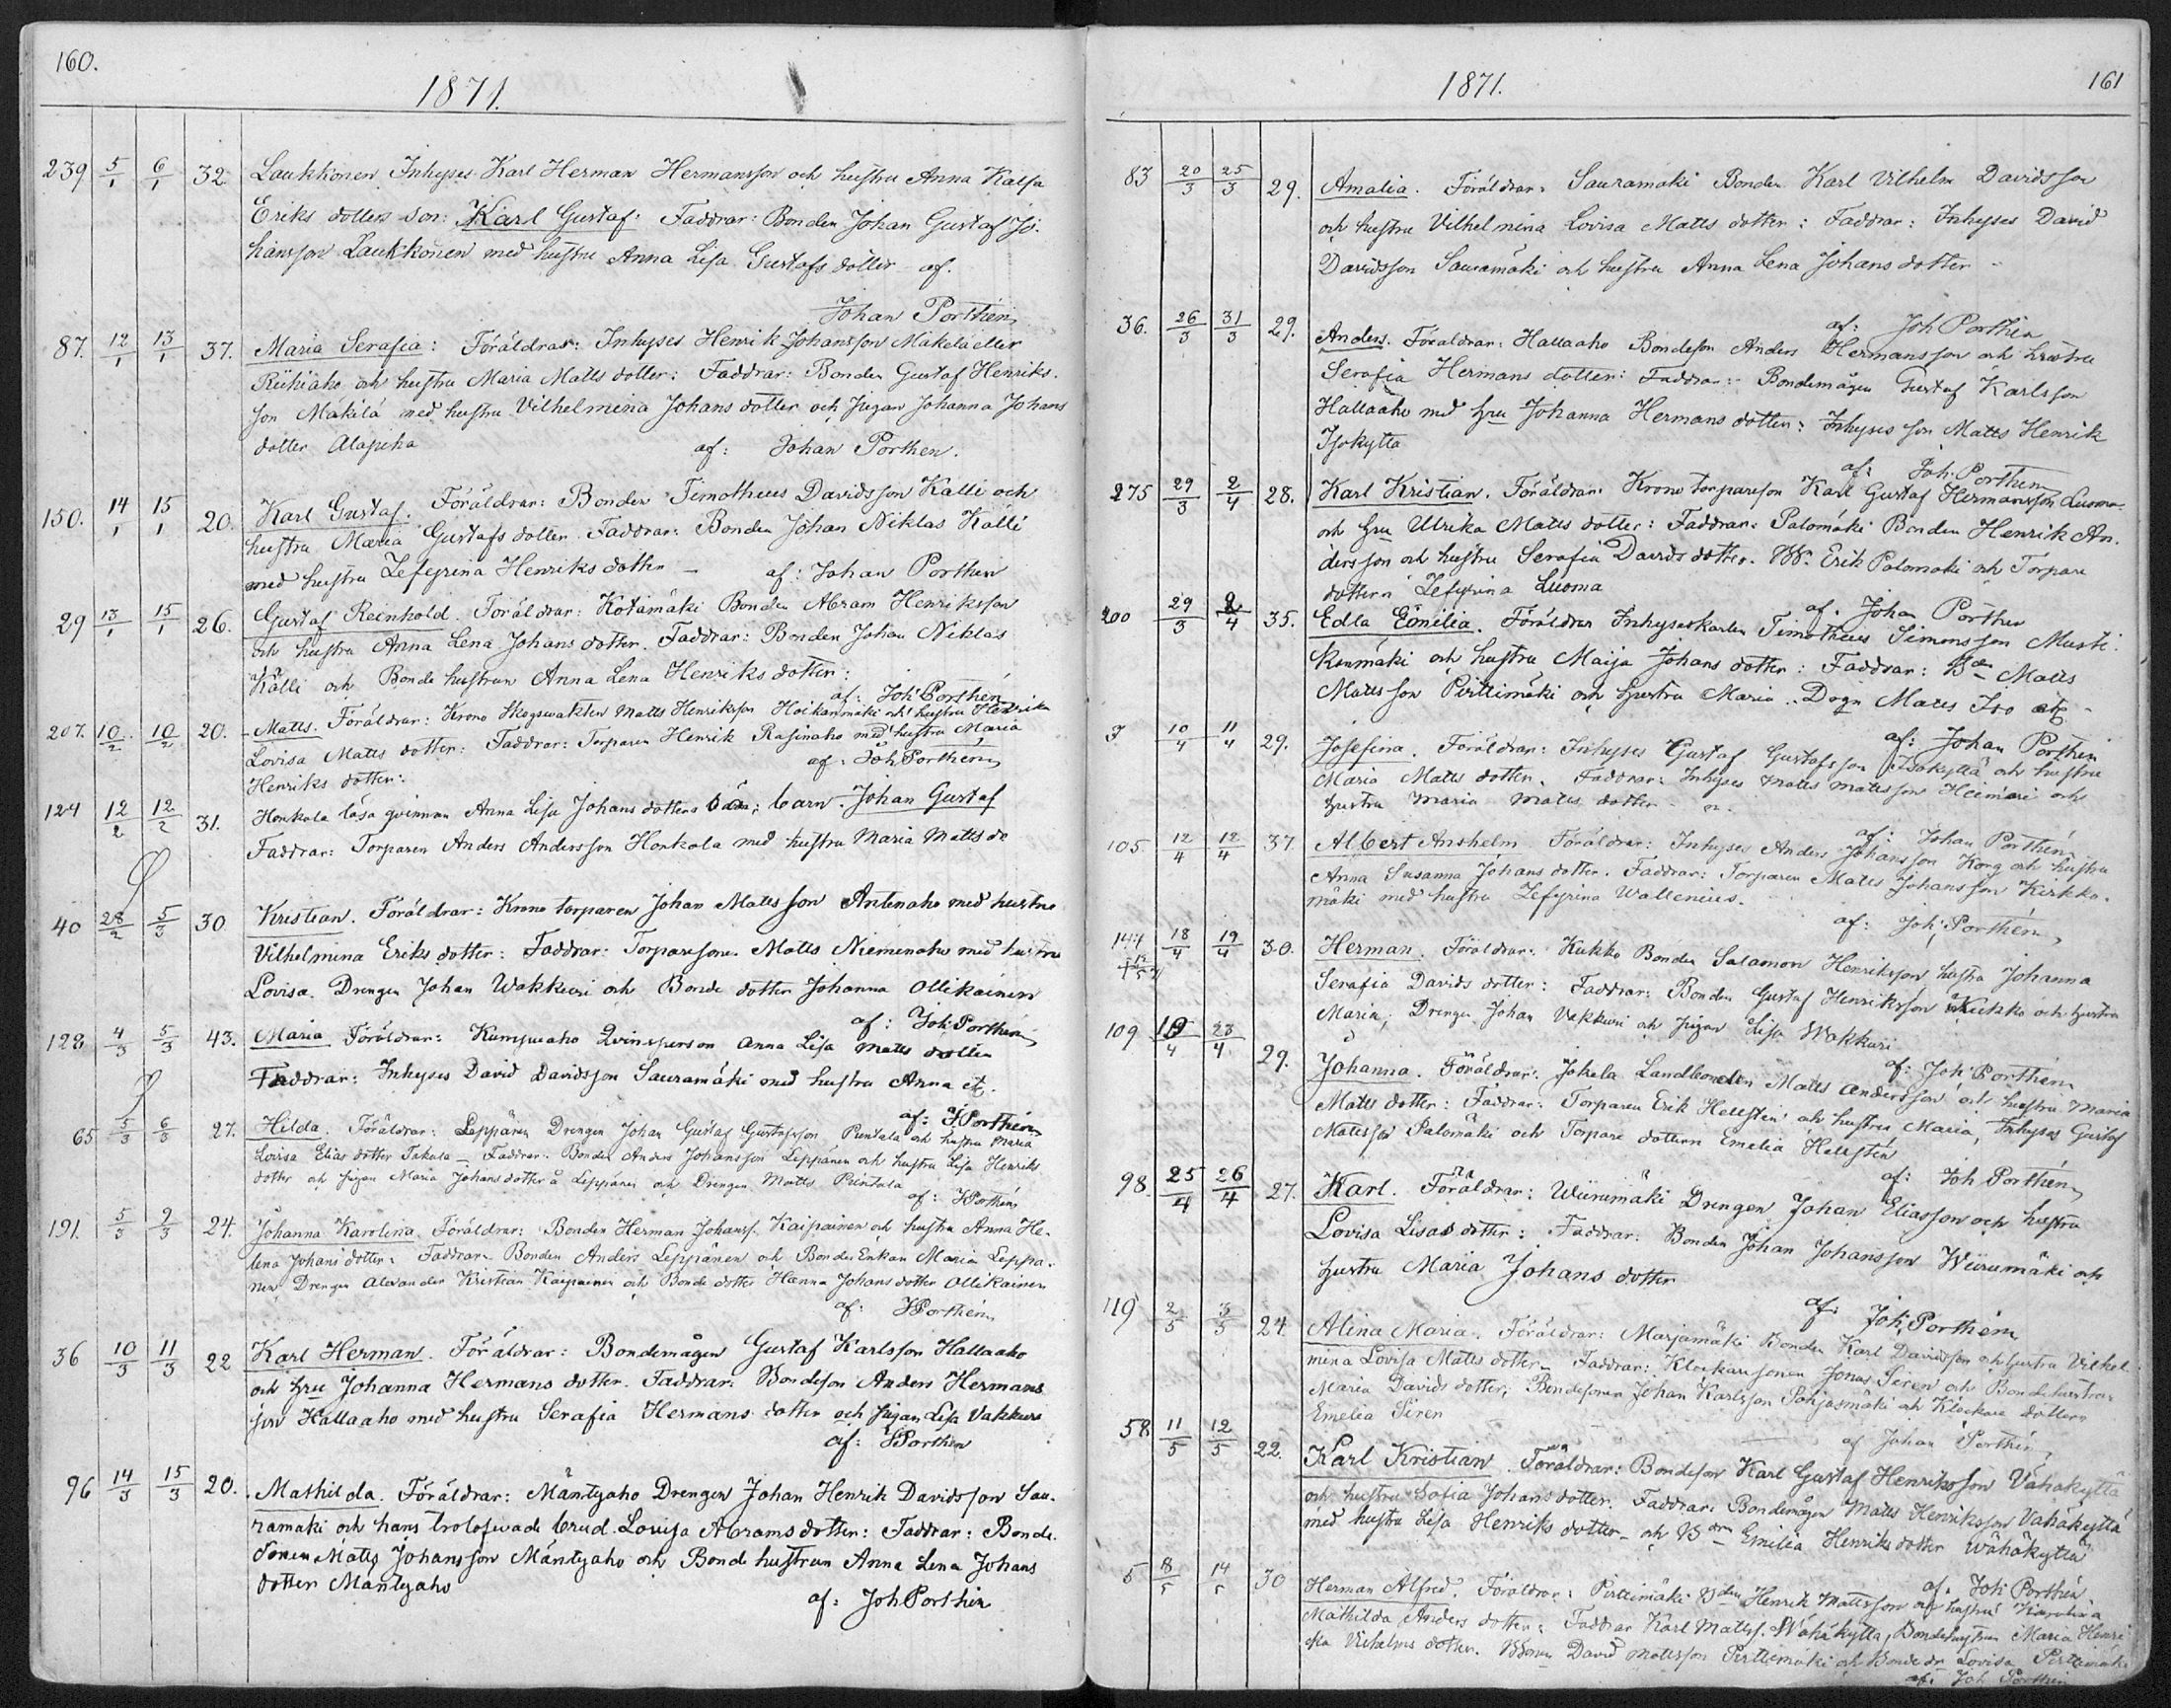 160.
1871.
239 5/1 6/1 32. Laukkonen Inhyses Karl Herman Hermansson och hustru Anna Kaisa
Eriks dotters son: Karl Gustaf: Faddrar: Bonden Johan Gustaf Jo-
hansson Laukkonen med hustru Anna Lisa Gustafs dotter af.
Johan Porthén
87. 12/1 13/1 37. Maria Serafia: Föräldrar: Inhyses Henrik Johansson Mäkelä eller
Riihiaho och hustru Maria Matts dotter: Faddrar: Bonden Gustaf Henriks-
son Mäkilä med hustru Vilhelmina Johans dotter och Pigan Johanna Johans
dotter Alapiha af: Johan Porthen.
150. 14/1 15/1 20. Karl Gustaf. Föräldrar: Bonden Timotheus Davidsson Kalli och
hustru Maria Gustafs dotter. Faddrar: Bonden Johan Niklas Källi
med hustru Zefyrina Henriks dotter — af: Johan Porthen
29 13/1 15/1 26. Gustaf Reinhold. Föräldrar: Kotamäki Bonden Abram Henriksson
och hustru Anna Lena Johans dotter. Faddrar: Bonden Johan Niklas
Källi och Bonde hustrun Anna Lena Henriks dotter:
af: Joh Porthén
207. 10/2 10/2 20. Matts. Föräldrar: Krono Skogswakten Matts Henriksson Hoikanmäki och hustru Henrika
Lovisa Matts dotter: Faddrar: Torparen Henrik Rasinaho med hustru Maria
Henriks dotter: af: Joh Porthén
124 12/2 12/2 31. Honkola lösa qvinnan Anna Lisa Johans dotters barn. Johan Gustaf
Faddrar: Torparen Anders Andersson Honkola med hustru Maria Matts do
40 28/2 5/3 30 Kristian. Föräldrar: Krono torparen Johan Matts son Antinaho med hustru
Vilhelmina Eriks dotter: Faddrar: Torparesonen Matts Nieminaho med hustru
Lovisa. Drengen Johan Wakkuri och Bonde dotter Johanna Ollikainen
af: Joh Porthén
128 4/3 5/3 43. Maria Föräldrar: Kumpuaho Qvinsperson Anna Lisa Matts dotter
Faddrar: Inhyses David Davidsson Sauramäki med hustru Anna etc.
af: J Porthén
65 5/3 6/3 27. Hilda. Föräldrar: Leppänen Drengen Johan Gustaf Gustafsson Puntala och hustru Maria
Lovisa Elias dotter Takala — Faddrar: Bonden Anders Johansson Leppänen och hustru Lisa Henriks
dotter och Pigan Maria Johans dotter å Leppänen och Drengen Matts Puntala
af: J Porthén
191. 5/3 9/3 24. Johanna Karolina. Föräldrar: Bonden Herman Johanss. Kaipainen och hustru Anna He-
lena Johans dotter: Faddrar. Bonden Anders Leppänen och Bonde Enkan Maria Leppä-
nen, Drengen Alexander Kristian Kaipainen och Bonde dotter Hanna Johans dotter Ollikainen
af: J Porthén
36 10/3 11/3 22 Karl Herman. Föräldrar: Bondemågen Gustaf Karlsson Hallaaho
och hru Johanna Hermans dotter. Faddrar: Bondeson Anders Hermans
son Hallaaho med hustru Serafia Hermans dotter och Pigan Lisa Vakkuri
af: J Porthen
96 14/3 15/3 20. Mathilda. Föräldrar: Mäntyaho Drengen Johan Henrik Davidsson Sau-
ramäki och hans trolofwade brud Lovisa Abrams dotter: Faddrar: Bonde
sonen Matts Johansson Mäntyaho och Bonde hustrun Anna Lena Johans
dotter Mäntyaho
af: Joh Porthén
161
1871.
83 20/3 25/3 29. Amalia. Föräldrar: Sauramäki Bonden Karl Vilhelm Davidsson
och hustru Vilhelmina Lovisa Matts dotter: Faddrar: Inhyses David
Davidsson Sauramäki och hustru Anna Lena Johans dotter
af: Joh Porthén
36. 26/3 31/3 29. Anders. Föräldrar: Hallaaho Bondeson Anders Hermansson och hustru
Serafia Hermans dotter: Faddrar: Bondemågen Gustaf Karlsson
Hallaaho med hru Johanna Hermans dotter: Inhyses son Matts Henrik
Isokyttä
af: Joh. Porthen
275 29/3 2/4 28. Karl Kristian. Föräldrar: Krono torpareson Karl Gustaf Hermansson Luoma
och hru Ulrika Matts dotter: Faddrar: Palomäki Bonden Henrik An-
dersson och hustru Serafia Davids dotter. Erik Palomäki och Torpare
dottern Zefyrina Luoma
af. Johan Porthen
200 29/3 2/4 35. Edla Emilia. Föräldrar Inhyseskarlen Timotheus Simonsson Musti-
konmäki och hustru Maija Johans dotter: Faddrar: Bden Matts
Mattsson Pirttimäki och hustru Maria
af: Johan Porthén
3 10/4 11/4 29. Josefina. Föräldrar: Inhyses Gustaf Gustafsson Isokyttä och hustru
Maria Matts dotter. Faddrar: Inhyses Matts Mattsson Heimari och
hustru Maria Matts dotter
af: Johan Porthén
105 12/4 12/4 37 Albert Anshelm Föräldrar: Inhyses Anders Johansson Kong och hustru
Anna Susanna Johans dotter. Faddrar: Torparen Matts Johansson Kirkko-
mäki med hustru Zefyrina Wallenius.
af: Joh; Porthén
144 18/4 19/4 30. Herman. Föräldrar: Kukko Bonden Salamon Henriksson hustru Johanna
Serafia Davids dotter: Faddrar: Bonden Gustaf Henriksson Kukko och hustru
Maria; Drengen Johan Vakkuri och Pigan Lisa Wakkuri
af: Joh Porthén
109 19/4 23/4 29. Johanna. Föräldrar: Jokela Landbonden Matts Andersson och hustru Maria
Matts dotter: Faddrar: Torparen Erik Hellsten och hustru Maria, Inhyses Gustaf
Mattsson Palomäki och Torpare dottern Emelia Hellstén
af: Joh Porthén
98. 25/4 26/4 27. Karl. Föräldrar: Wiirumäki Drengen Johan Eliasson och hustru
Lovisa Lisas dotter: Faddrar: Bonden Johan Johansson Wiirumäki och
hustru Maria Johans dotter
af: Joh; Porthén
119 2/5 3/5 24. Alina Maria. Föräldrar: Marjamäki Bonden Karl Davidsson och hustru Vilhel-
mina Lovisa Matts dotter. Faddrar: Klockaresonen Jonas Siren och Bondehustrun
Maria Davids dotter; Bondesonen Johan Karlsson Pohjasmäki och Klockare dottern
Emelia Siren
af Johan Porthén
58 11/5 12/5 22. Karl Kristian. Föräldrar: Bondeson Karl Gustaf Henriksson Vähäkyttä
och hustru Sofia Johans dotter. Faddrar: Bondemågen Matts Henriksson Vähäkyttä
med hustru Lisa Henriks dotter och Emilia Henriks dotter Wähäkyttä
af. Joh Porthén.
5 8/5 14/5 30 Herman Alfred. Föräldrar: Pirttimäki Bden Henrik Mattsson och hustru Karolina
Mathilda Anders dotter: Faddrar Karl Mattss. Wähäkyttä, Bondehustrun Maria Henri-
ka Vilhelms dotter. David Mattsson Pirttimäki och Bonde dr Lovisa Pirttimäki
af: Joh Porthén